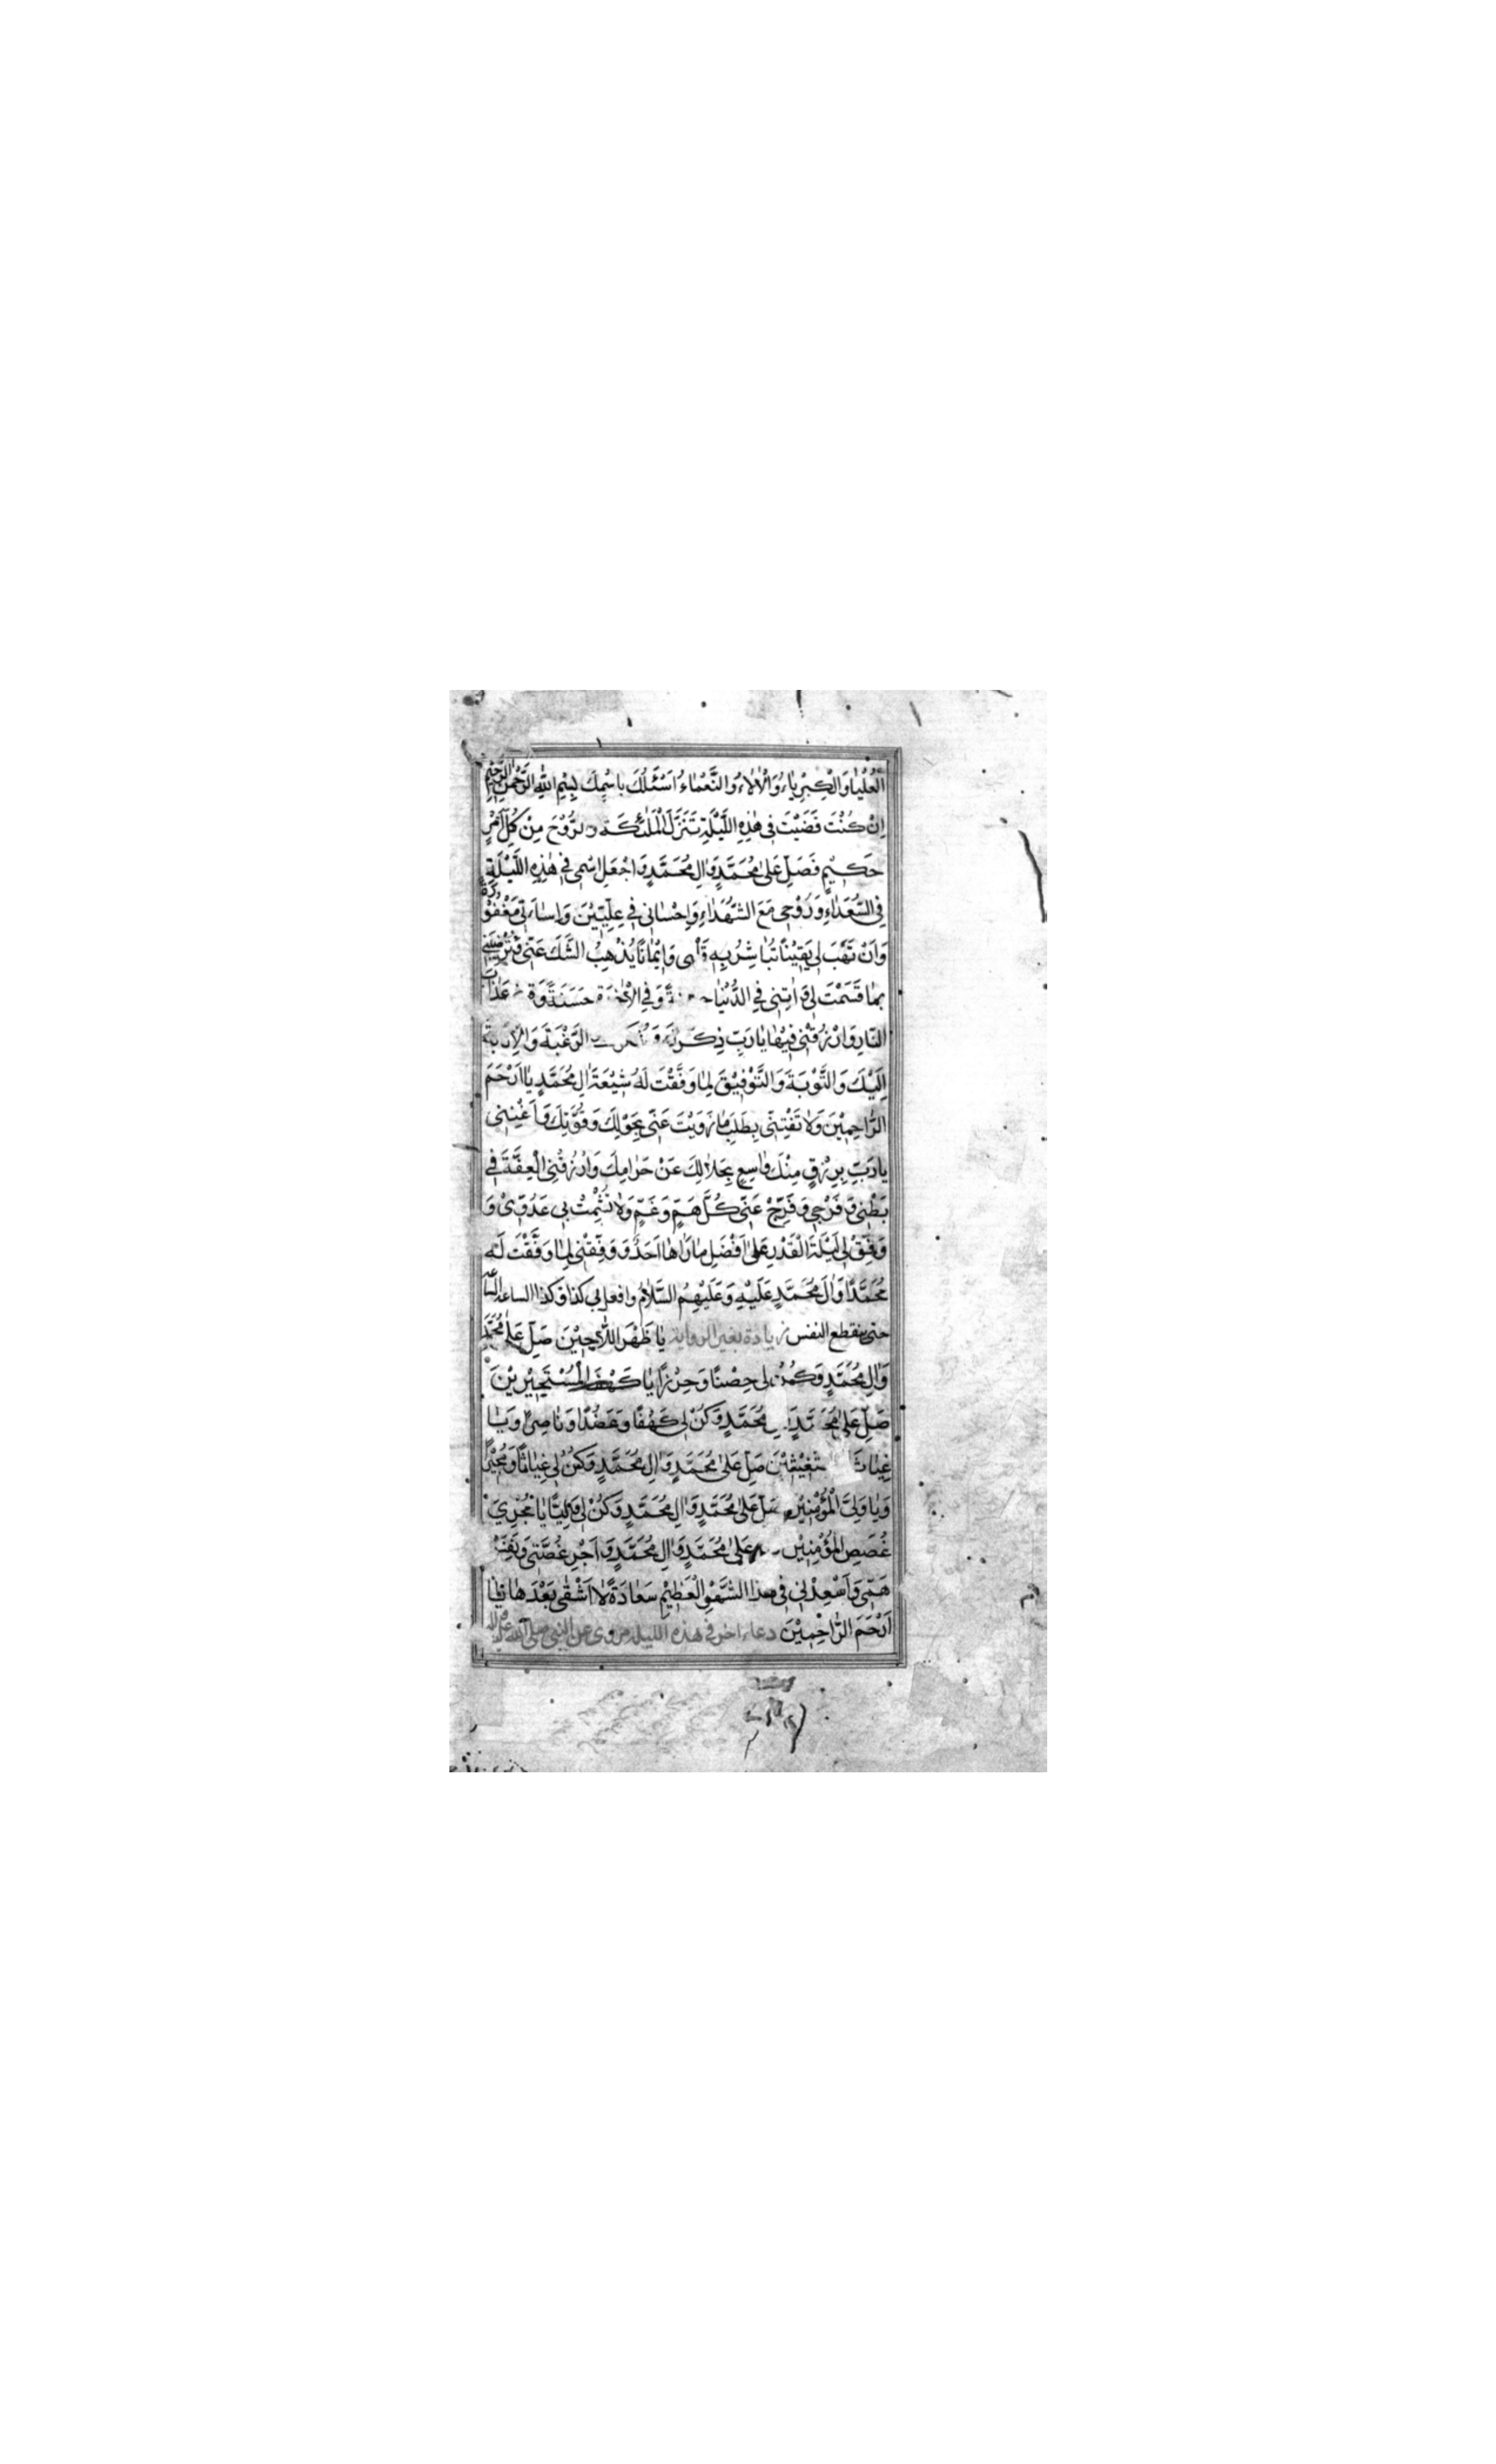 الْعُلْيَا وَالْكِبْرِيَاءُ وَالْاٰلَاءُ وَالنَّعْمَاءُ اَسْئَلُكَ بِاسْمِكَ بِسْمِ اللّٰهِ الرَّحْمٰنِ الرَّحِيْمِ
اِنْ كُنْتَ قَضَيْتَ فِى هٰذِهِ اللَّيْلَةِ تَنَزُّلَ الْمَلٰئِكَةِ وَالرُّوْحِ مِنْ كُلِّ اَمْرٍ
حَكِيْمٍ فَصَلِّ عَلٰى مُحَمَّدٍ وَاٰلِ مُحَمَّدٍ وَاجْعَلِ اسْمِى فِى هٰذِهِ اللَّيْلَةِ
فِى السُّعَدَاءِ وَرُوْحِى مَعَ الشُّهَدَاءِ وَاِحْسَانِى فِى عِلِّيِّيْنَ وَاِسَاءَتِى مَغْفُوْرَةً
وَاَنْ تَهَبَ لِى يَقِيْنًا تُبَاشِرُ بِهِ وَاِيْمَانًا يُذْهِبُ الشَّكَّ عَنِّى وَتُرْضِيَنِى
بِمَا قَسَمْتَ لِى وَاٰتِنِى فِى الدُّنْيَا وَفِى الْاٰخِرَةِ حَسَنَةً عَذَابَ
النَّارِ وَارْزُقْنِى فِيْهَا يَا رَبِّ ذِكْرَكَ وَشُكْرَكَ وَالرَّغْبَةَ وَالْاِنَابَةَ
اِلَيْكَ وَالتَّوْبَةَ وَالتَّوْفِيْقَ لِمَا وَفَّقْتَ لَهُ شِيْعَةَ اٰلِ مُحَمَّدٍ يَا اَرْحَمَ
الرَّاحِمِيْنَ وَلَا تَفْتِنِّى بِطَلَبِ مَا زَوَيْتَ عَنِّى بِحَوْلِكَ وَقُوَّتِكَ وَاَغْنِنِى
يَا رَبِّ بِرِزْقٍ مِنْكَ وَاسِعٍ بِحَلَالِكَ عَنْ حَرَامِكَ وَارْزُقْنِى الْعِفَّةَ فِى
بَطْنِى وَفَرْجِى وَفَرِّجْ عَنِّى كُلَّ هَمٍّ وَغَمٍّ وَلَا تُشْمِتْ بِى عَدُوِّىْ وَ
وَفِّقْ لِى لَيْلَةَ الْقَدْرِ عَلٰى اَفْضَلِ مَا رَاٰهَا اَحَدٌ وَوَفِّقْنِى لِمَا وَفَّقْتَ لَهُ
مُحَمَّدًا وَاٰلَ مُحَمَّدٍ عَلَيْهِ وَعَلَيْهِمُ السَّلَامُ وافعل بى كذا وكذا الساعة الساعة
حتى ينقطع النفس زيادة بغير الرواية يَا ظَهْرَ اللَّاجِيْنَ صَلِّ عَلٰى مُحَمَّدٍ
وَاٰلِ مُحَمَّدٍ وَكُنْ لِى حِصْنًا وَحِرْزًا يَا كَهْفَ الْمُسْتَجِيْرِيْنَ
صَلِّ عَلٰى مُحَمَّدٍ مُحَمَّدٍ وَكُنْ لِى كَهْفًا وَعَضُدًا وَنَاصِرًا وَيَا
غِيَاثَ صَلِّ عَلٰى مُحَمَّدٍ وَاٰلِ مُحَمَّدٍ وَكُنْ لِى غِيَاثًا وَمُجِيْرًا
وَيَا وَلِىَّ الْمُؤْمِنِيْنَ صَلِّ عَلٰى مُحَمَّدٍ وَاٰلِ مُحَمَّدٍ وَكُنْ لِى وَلِيًّا يَا مُجْرِىَ
غُصَصِ الْمُؤْمِنِيْنَ عَلٰى مُحَمَّدٍ وَاٰلِ مُحَمَّدٍ وَاَجْرِ غُصَّتِى وَنَفِّسْ
هَمِّى وَاَسْعِدْنِى فِى هٰذَا الشَّهْرِ الْعَظِيْمِ سَعَادَةً لَا اَشْقٰى بَعْدَهَا يَا
اَرْحَمَ الرَّاحِمِيْنَ دعاء اخر فى هذه الليلة مروى عن النبى صلى الله عليه